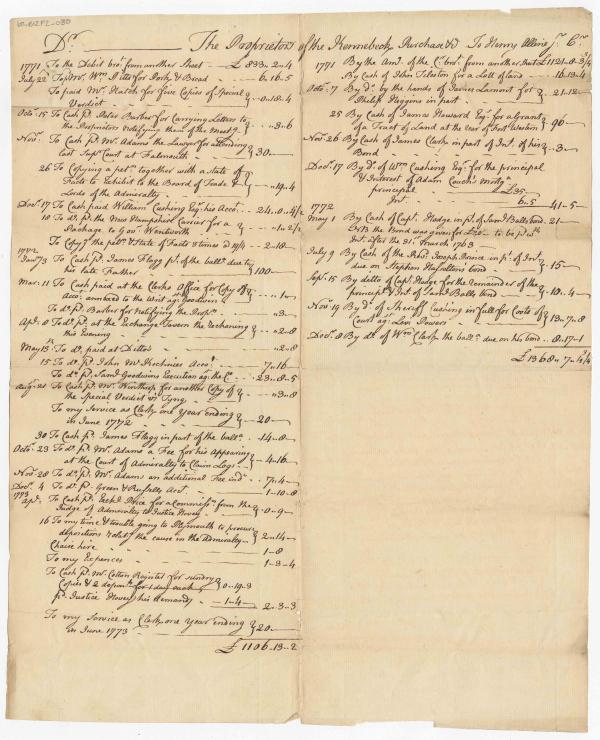 Dr. The Proprietors of the Kennebeck Purchase &c To Henry Alline jr. Cr.
1771 To the Debit bro't from another Sheet £ 833.. 2..4
July 22 To pd. Mr. Wm. Pitts for Pork & Bread 6..16..5
To paid Mr. Hatch for five Copies of Special
Verdict 0..18..4
Octo. 15 To Cash pd. Peter Barber for Carrying Letters to
the Proprietors notifying them of the Meetg. ..3..6
Novr. To Cash pd. Mr. Adams the Lawyer for attending
last Supr. Court at Falmouth 30
26 To Copying a petn. together with a state of
Facts to Exhibit to the Board of Trade &
Lords of the Admiralty ..19..4
Decr. 17 To Cash paid William Cushing Esqr. his Acco. 24..0..4/2
10 To do. pd. the New Hampshire Carrier for a
Package to Gov. Wentworth ..1..2/2
To Copyg. the petn. & State of Facts 3 times 2..18
1772
Jany. 73 To Cash pd. James Flagg pt. of the balla. due to
his late Father 100
Mar. 11 To Cash paid at the Clerks Office for Copy of
Acco. annexed to the Writ agt. Goodwin ..1
To do. pd. Barber for Notifying the Propr. ..3
Apl. 8 To do. pd. at the Exchange Tavern the reckoning
this Evening ..2..8
May 13 To do. paid at Ditto ..2..8
15 To do. pd. John McKechnies Acco. 7..16
To do. pd. Saml. Goodwins Execution agt. the Co. 23..8..5
Augt. 21 To Cash pd. Mr. Winthrop for another Copy of
the Special Verdict vs. Tyng ..3..8
To my Service as Clerk one Year ending
in June 1772 20
30 To Cash pd. James Flagg in part of the balla. 14..8
Octo. 23 To do. pd. Mr. Adams a Fee for his Appearing
at the Court of Admiralty to Claim Logs 4..16
Novr. 28 To do. pd. Mr. Adams an additional Fee 7..4
Decr. 4 To do. pd. Green & Russells Acct. 1..10..8
1773
Apl. To Cash pd. Ezekl. Price for a Commissn. from the
Judge of Admiralty to Justice Hovey 0..9
16 To my time & trouble going to Plymouth to procure
depositions relatg. the cause in the Admiralty 2..14
Chaise hire 1..8
To my Expences 1..3..4
To Cash pd. Mr. Cotton Register for sundry
Copies & 2 deponts. for 1 day each 0..19..3
pd. Justice Hovey his demand 1..4 2..3..3
To my Service as Clerk one Year ending
in June 1773 20
£ 1106..13..2
1771 By the Amt. of the Cr. bro't from another Shet £ 1121..8..3/4
By Cash of John Tileston for a Lott of land 16..13..4
Octo. 7 By do. by the hands of James Lamont for
Philip Higgins in part 21..12
29 By Cash of James Howard Esqr. for a Grant
of a Tract of Land at the rear of Fort Western 96
Nov. 26 By Cash of James Clark in part of Int. of his
Bond 3
Decr. 17 By do. of Wm. Cushing Esqr. for the principal
& Interest of Adam Couch's Mortga.
principal £35
Int. 6..5 41..5
1772
May 1 By Cash of Capt. Hodge in pt. of Saml. Balls bond 21
NB the Bond was given for with
Int. after the 31st. March 1763
July 9 By Cash of the Hon. Joseph Prince in pt. of Int.
due on Stephen bond 15
Sepr. 15 By ditto of Capt. Hodge for the remainder of the
principl. & Int. of Saml. Balls bond 10..4
Novr. 19 By do. of Sheriff Cushing in full for Costs of
Court agt. Levi Powers 13..7..8
Decr. 8 By do. of Wm. Clark the balla. due on his bond 8..17..1
£ 1368..7..4/4